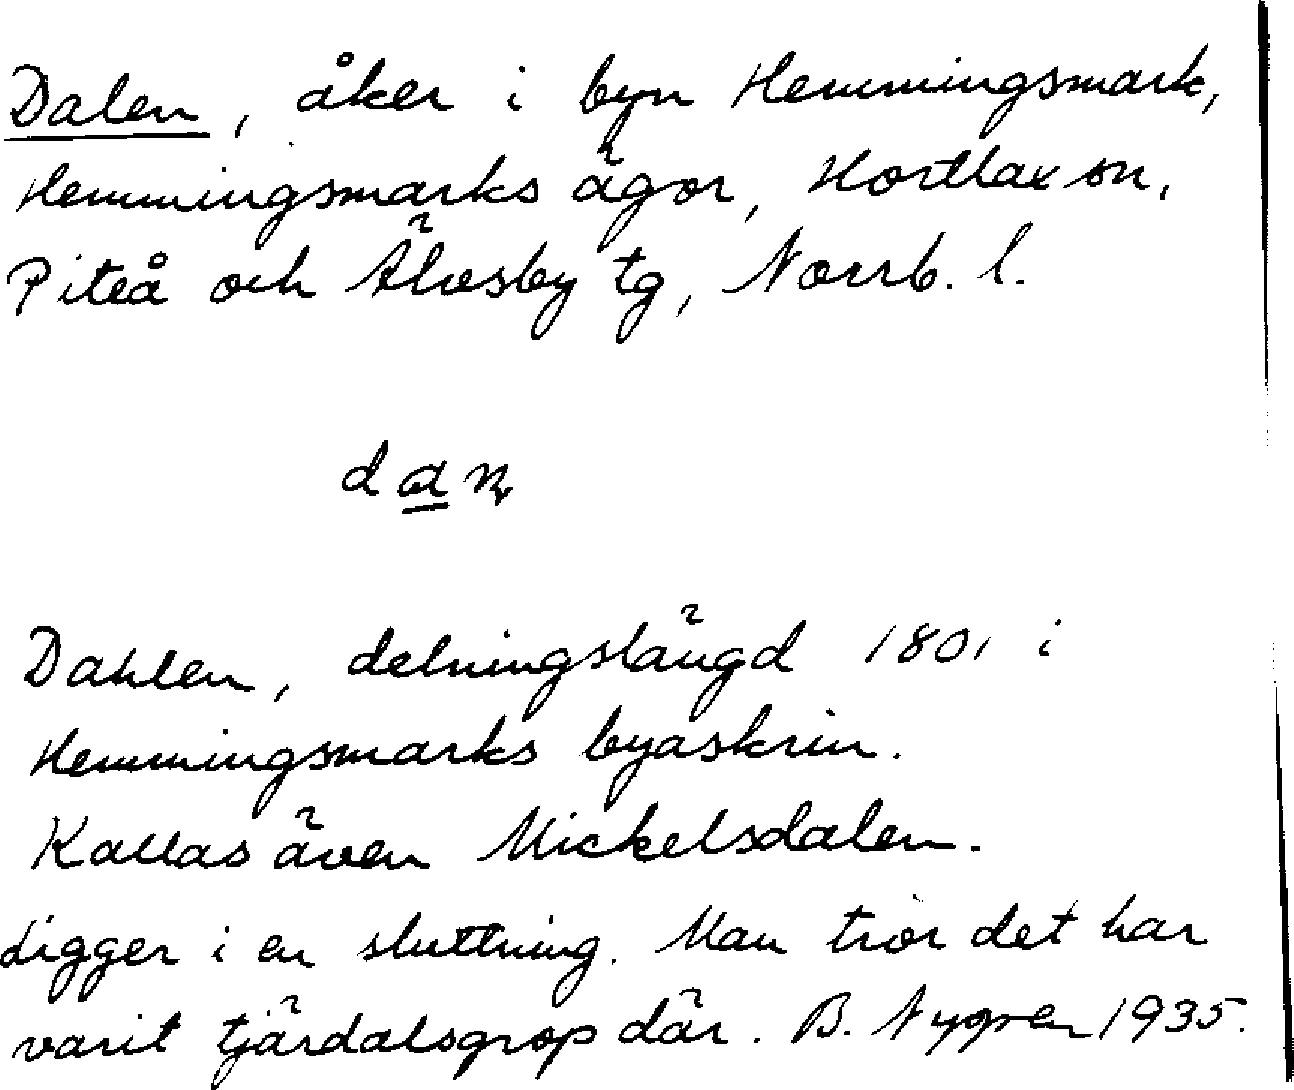 Dalen, åker i byn Hemmingsmark,
Hemmingsmarks ägor, Hortlax sn,
Piteå och Älvsby tg, Norrb. l.
daṇ
Dahlen, delningslängd 1801 i
Hemmingsmarks byaskrin.
Kallas även Mickelsdalen.
Ligger i en sluttning. Man tror det har
varit tjärdalsgrop där. B. Nygren 1935.